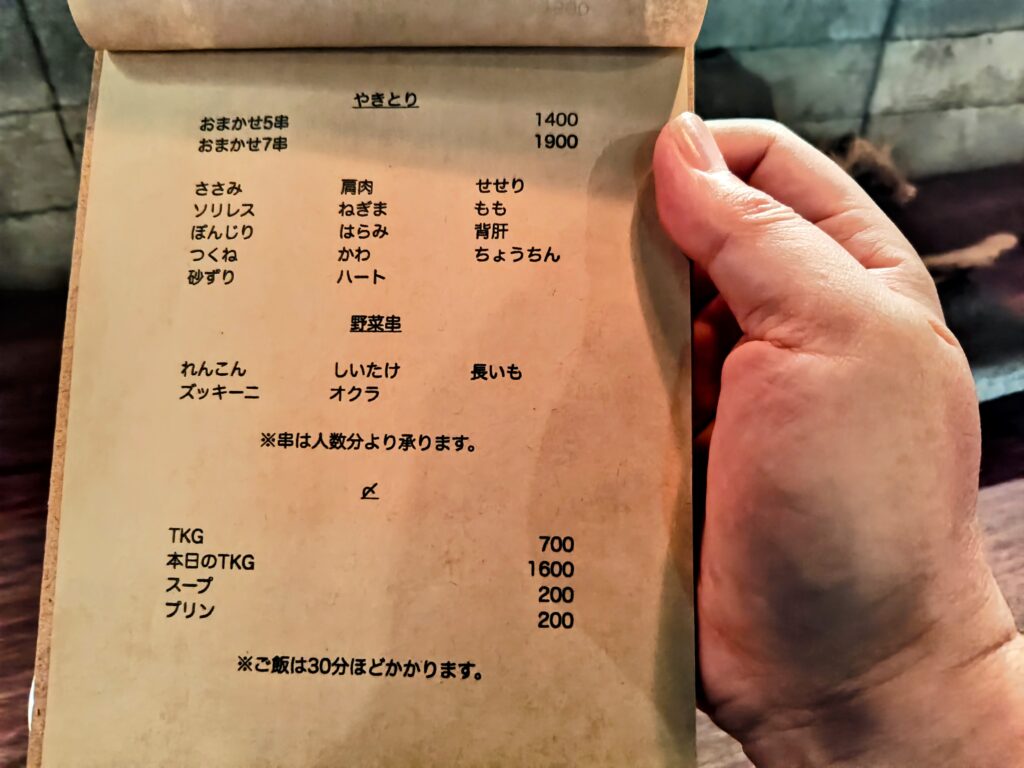 やきとり
おまかせ5串 1400
おまかせ7串 1900
ささみ 肩肉 せせり
ソリレス ねぎま もも
ぼんじり はらみ 背肝
つくね かわ ちょうちん
砂ずり ハート
野菜串
れんこん しいたけ 長いも
ズッキーニ オクラ
※串は人数分より承ります。
〆
TKG 700
本日のTKG 1600
スープ 200
プリン 200
※ご飯は30分ほどかかります。